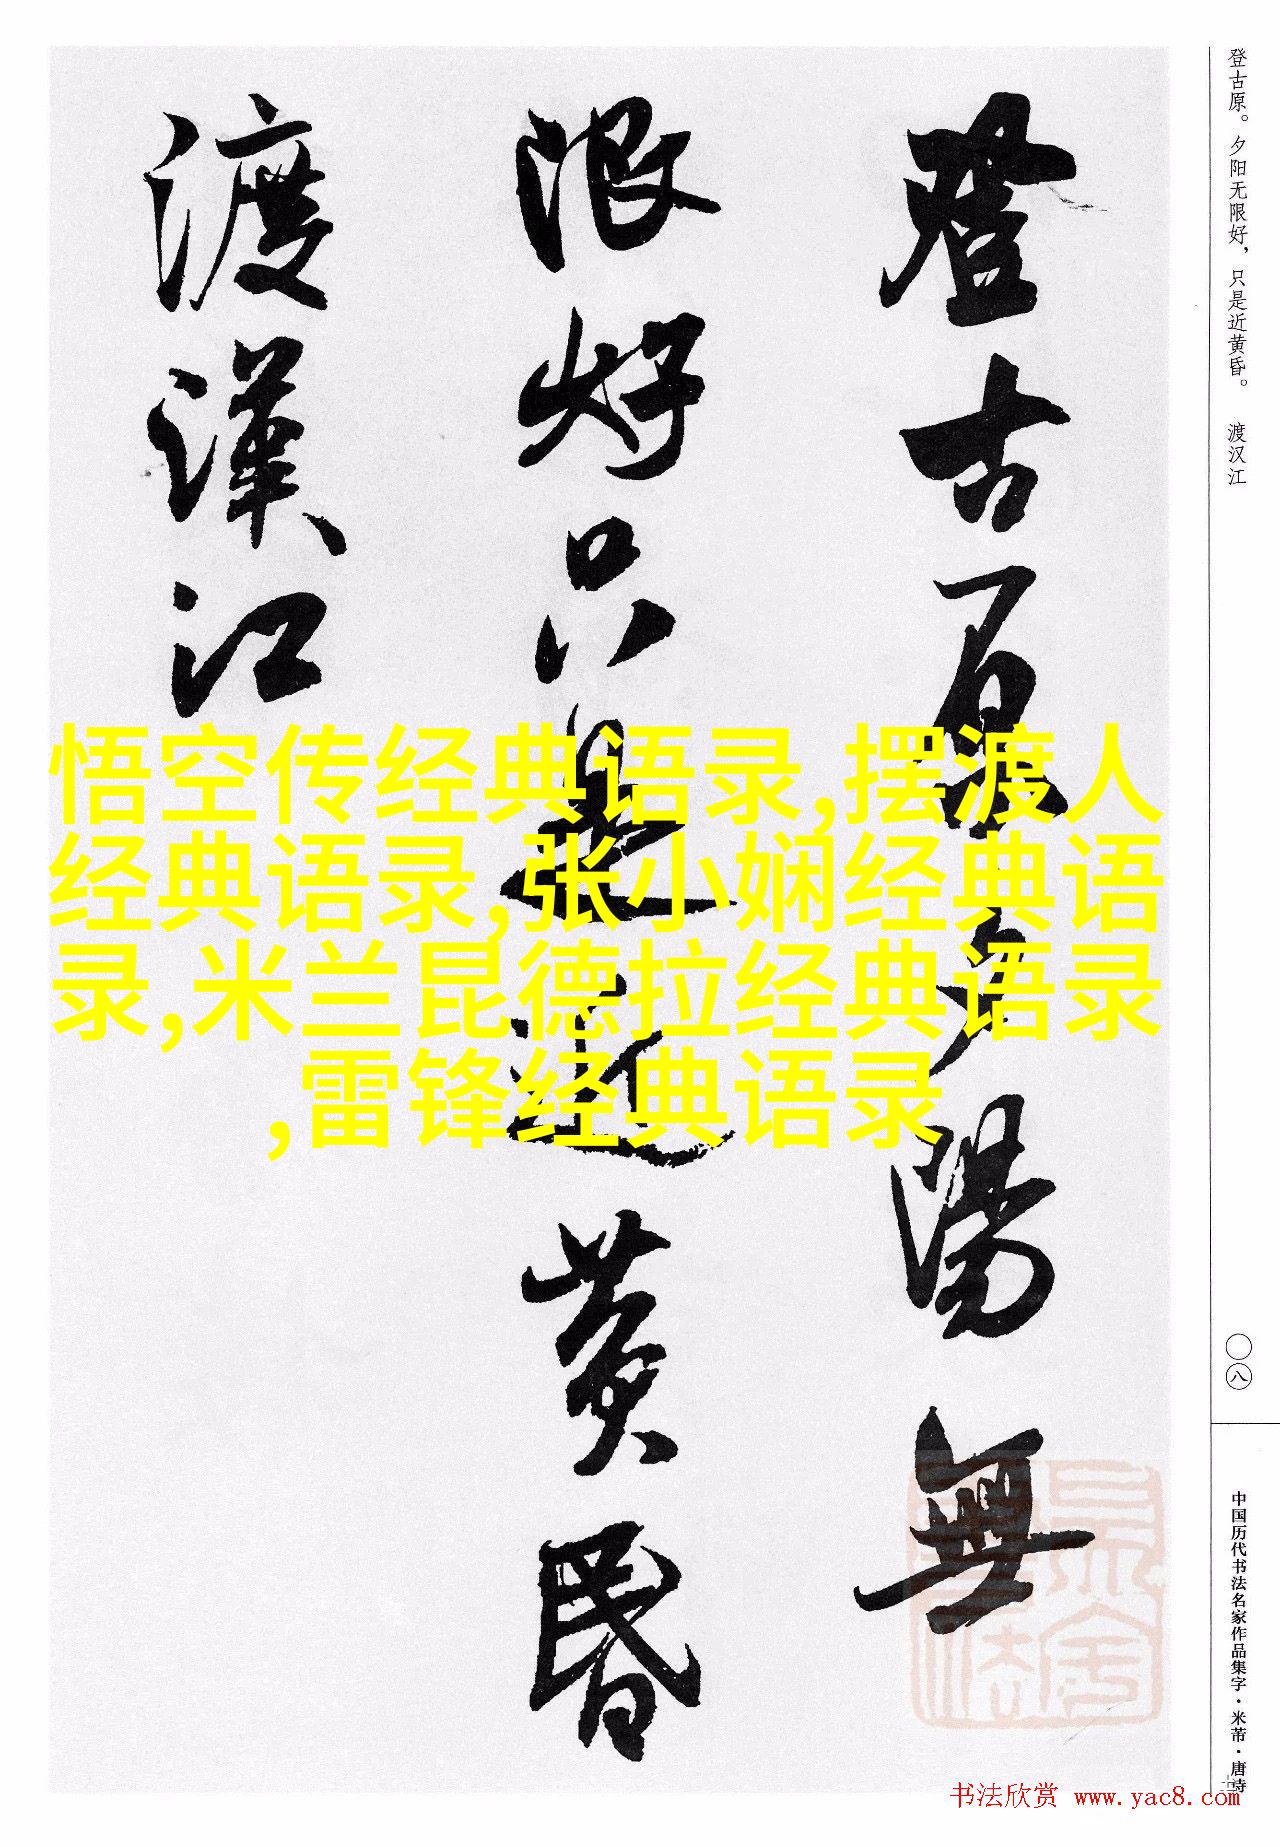 登古原夕陽無
限好只是近黄昏
渡漢江
登古原。夕阳无限好，只是近黄昏。 渡汉江
〇八
中国历代书法名家作品集字·米芾·唐诗
悟空传经典语录,摆渡人
经典语录,张小娴经典语
录,米兰昆德拉经典语录
,雷锋经典语录
书法欣赏 www.yac8.com